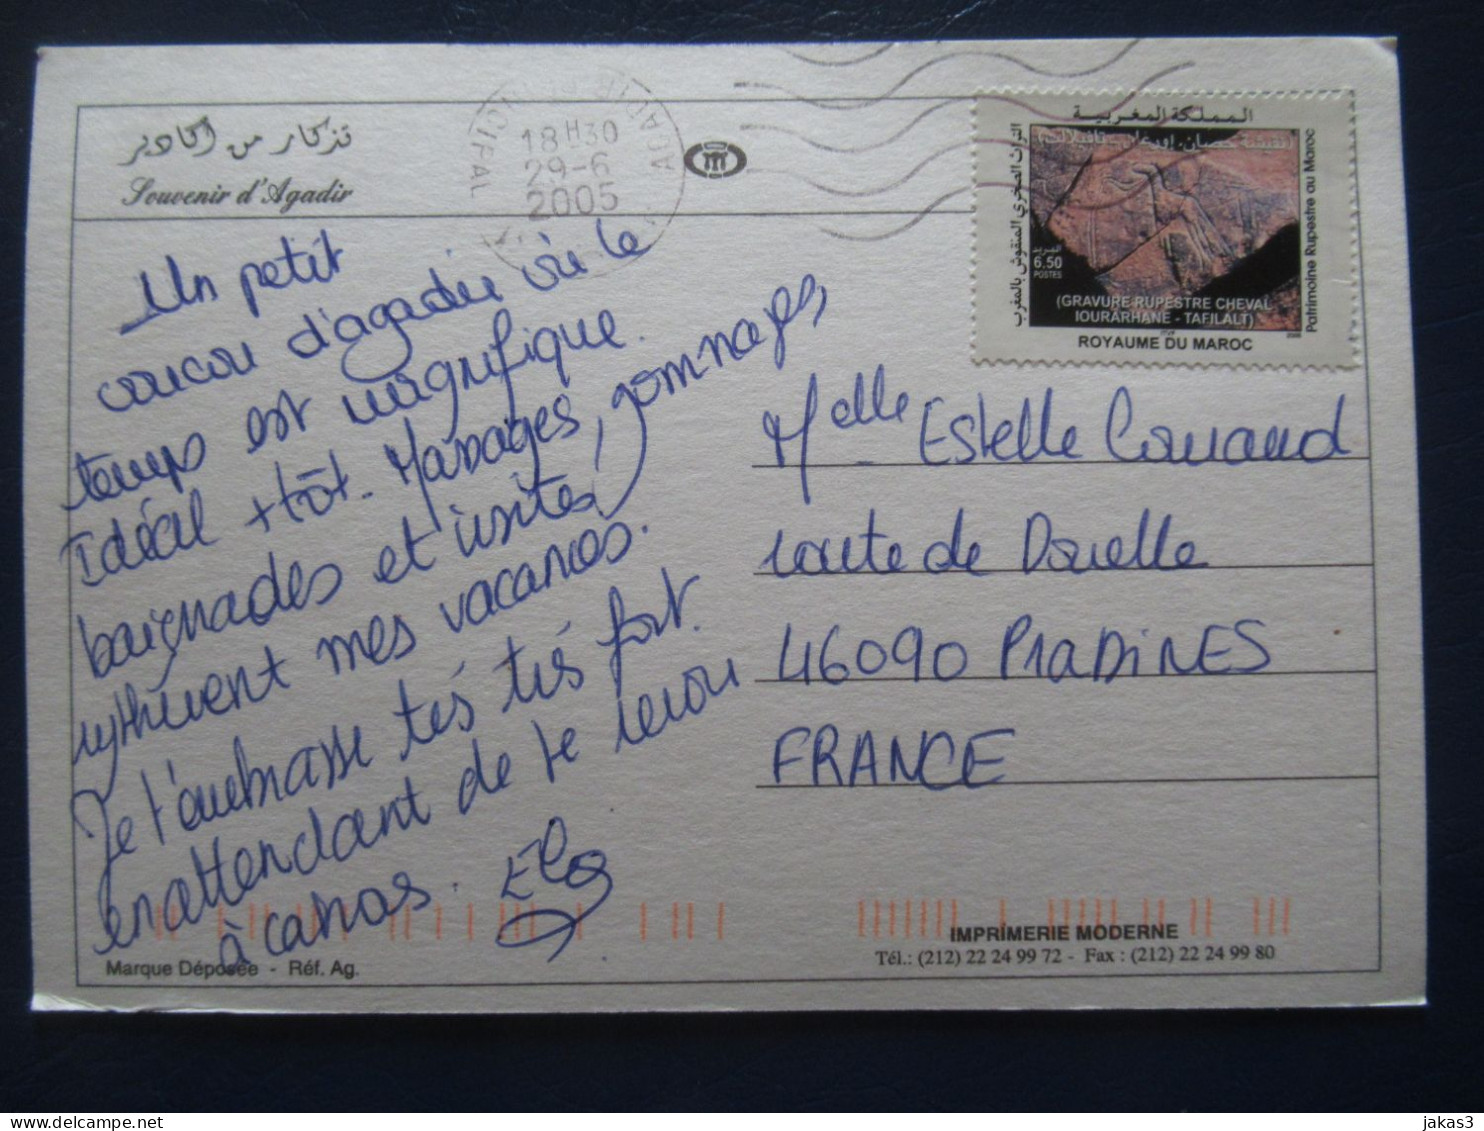 تذكار من أكادير
Souvenir d'Agadir
AGADIR
PRINCIPAL
18H30
29-6
2005
المملكة المغربية
التراث الصخري المنقوش بالمغرب
Patrimoine Rupestre au Maroc
البريد
6.50
POSTES
(GRAVURE RUPESTRE CHEVAL
IOURARHANE - TAFILALT)
ROYAUME DU MAROC
Un petit
coucou d'agadir où le
temps est magnifique.
Idéal + tôt. Massages, gommages,
baignades et visites
rythment mes vacances.
Je t'embrasse très très fort.
en attendant de te revoir
à cahors.
Melle Estelle
route de Douelle
46090 PRADINES
FRANCE
Marque Déposée - Réf. Ag.
IMPRIMERIE MODERNE
Tél.: (212) 22 24 99 72 - Fax : (212) 22 24 99 80
jakas3